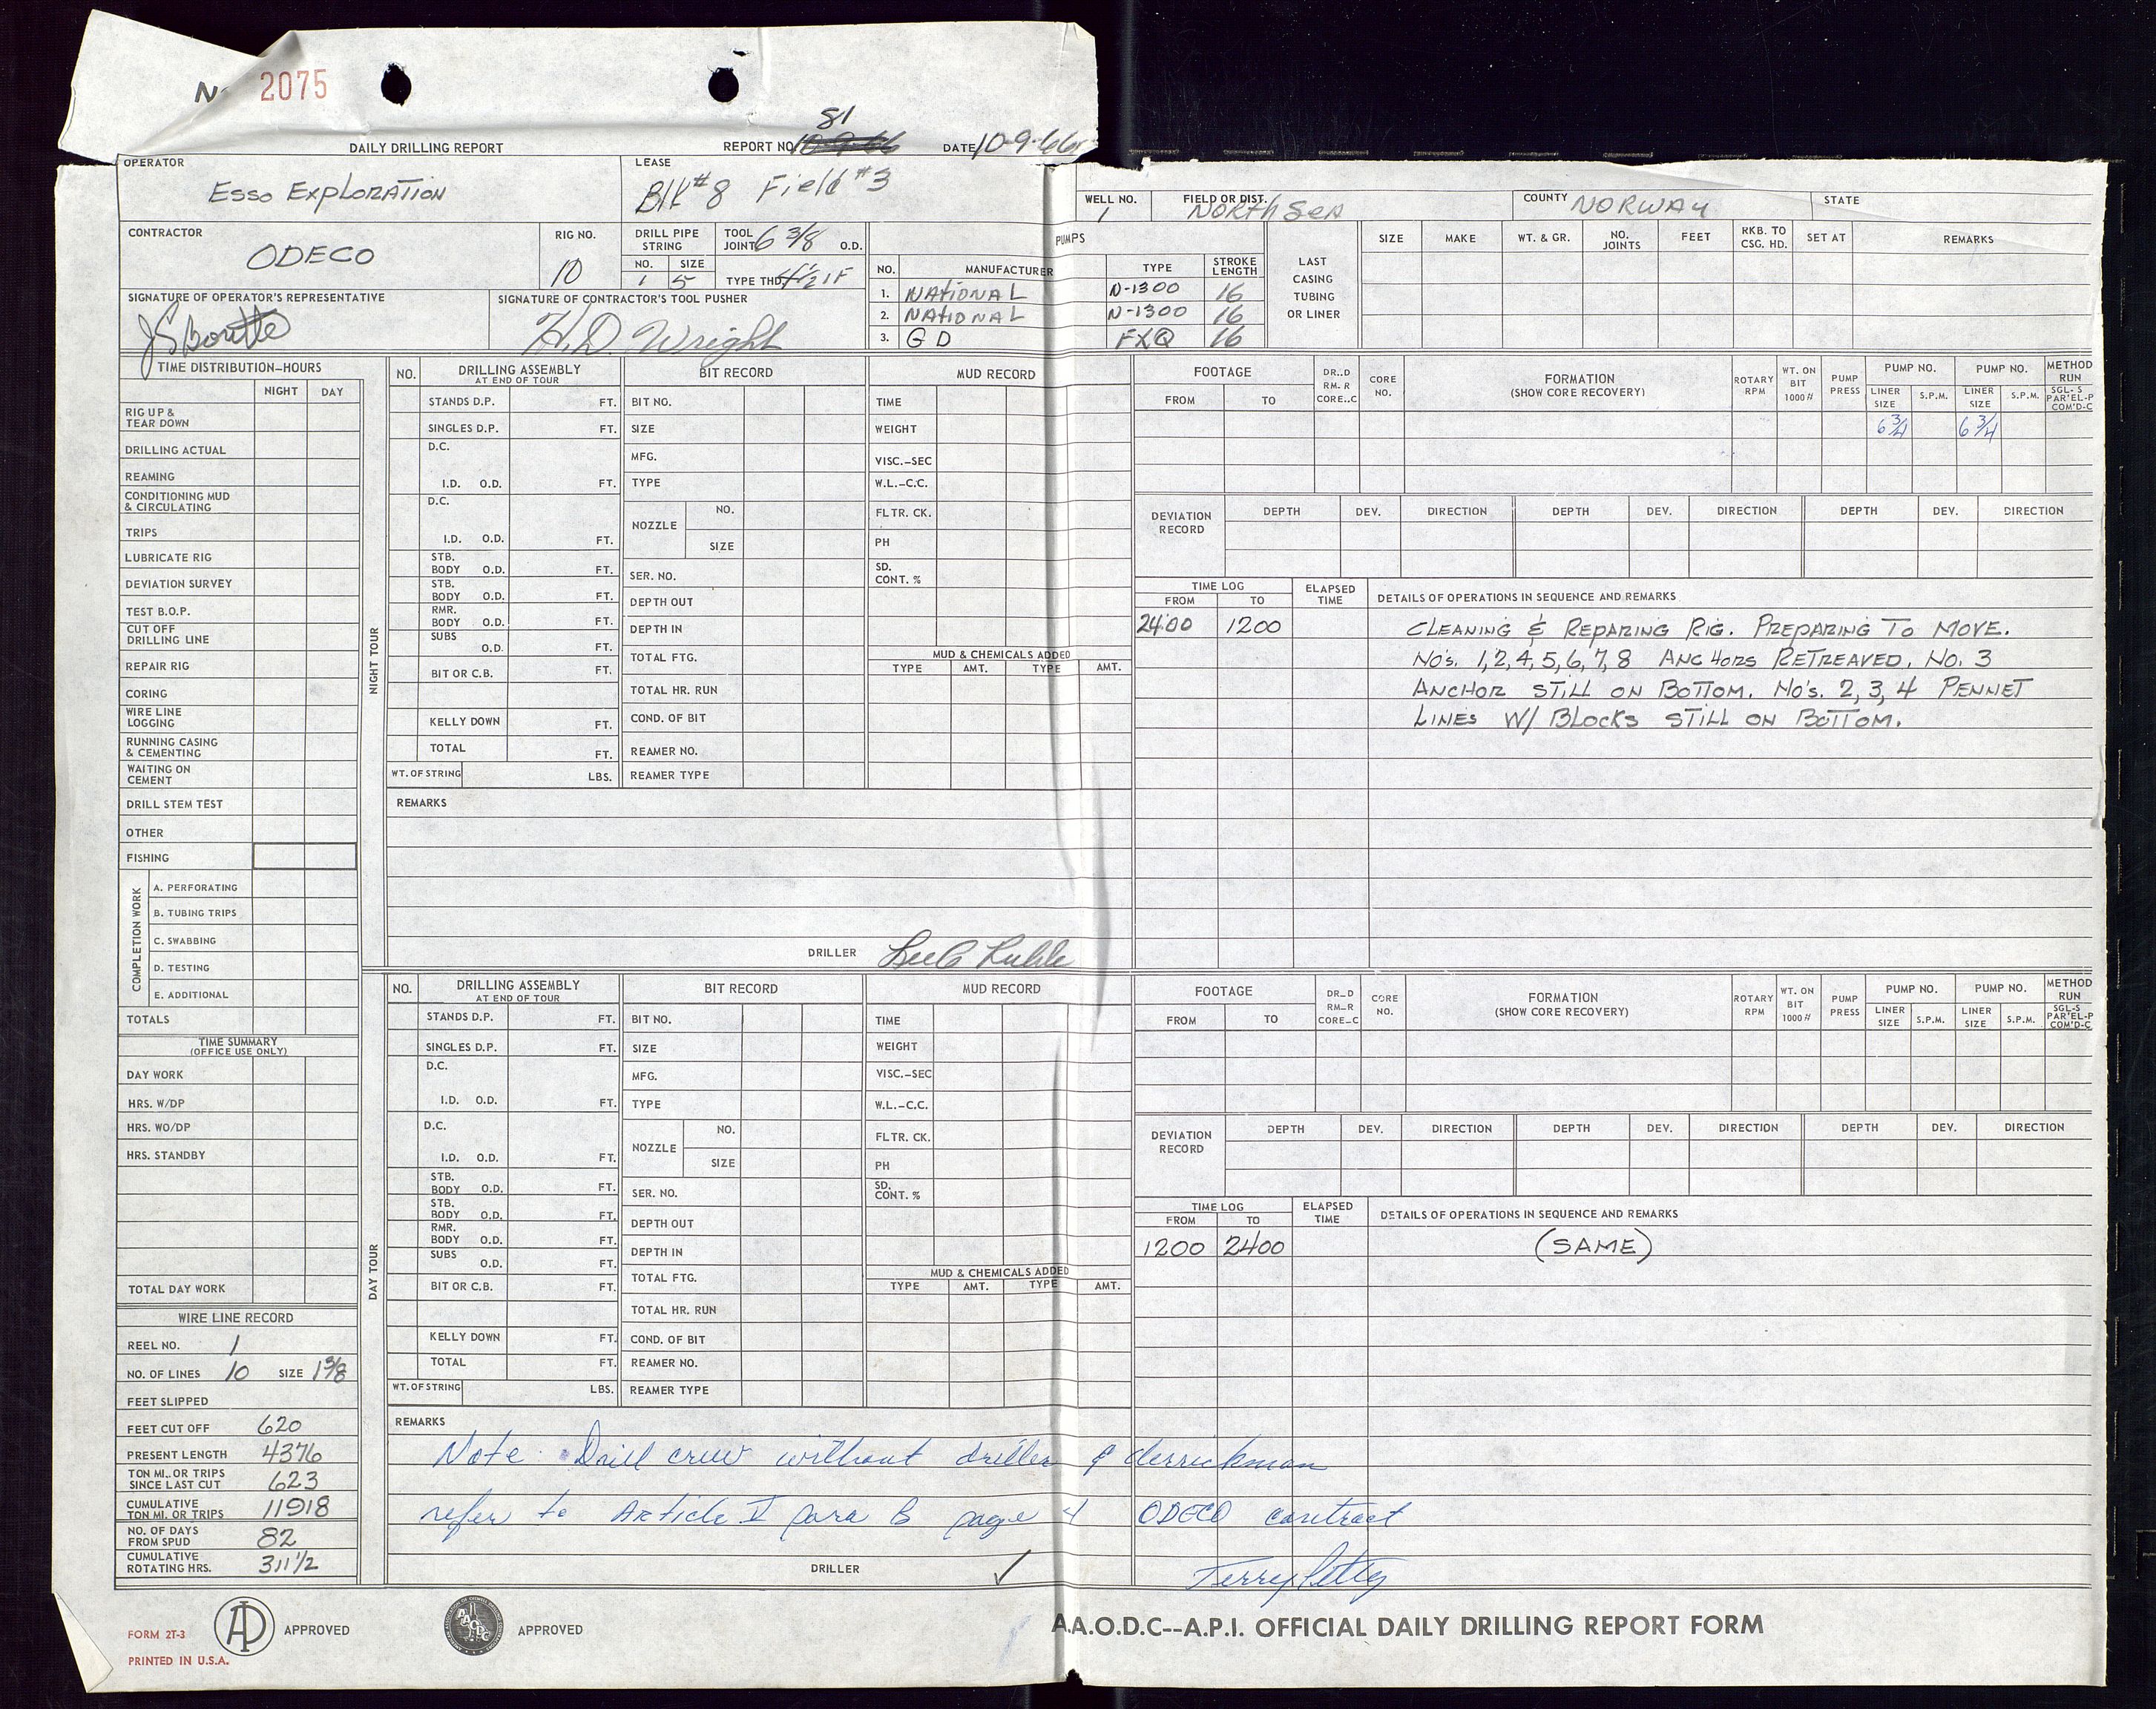 No 2075
DAILY DRILLING REPORT REPORT NO. 10-9-66 81 DATE 10-9-66
OPERATOR Esso Exploration
LEASE Blk #8 Field #3
WELL NO. 1
FIELD OR DIST. North Sea
COUNTY NORWAY
STATE
CONTRACTOR ODECO
RIG NO. 10
DRILL PIPE STRING NO. 1 SIZE 5
TOOL JOINT 6 3/8 O.D.
TYPE THD. 4 1/2 IF
PUMPS
NO. MANUFACTURER TYPE STROKE LENGTH
1. NATIONAL N-1300 16
2. NATIONAL N-1300 16
3. G D FXQ 16
LAST CASING TUBING OR LINER
SIZE MAKE WT. & GR. NO. JOINTS FEET RKB. TO CSG. HD. SET AT REMARKS
SIGNATURE OF OPERATOR'S REPRESENTATIVE
SIGNATURE OF CONTRACTOR'S TOOL PUSHER H.D. Wright
TIME DISTRIBUTION-HOURS
NIGHT DAY
RIG UP & TEAR DOWN
DRILLING ACTUAL
REAMING
CONDITIONING MUD & CIRCULATING
TRIPS
LUBRICATE RIG
DEVIATION SURVEY
TEST B.O.P.
CUT OFF DRILLING LINE
REPAIR RIG
CORING
WIRE LINE LOGGING
RUNNING CASING & CEMENTING
WAITING ON CEMENT
DRILL STEM TEST
OTHER
FISHING
COMPLETION WORK
A. PERFORATING
B. TUBING TRIPS
C. SWABBING
D. TESTING
E. ADDITIONAL
TOTALS
TIME SUMMARY
(OFFICE USE ONLY)
DAY WORK
HRS. W/DP
HRS. WO/DP
HRS. STANDBY
TOTAL DAY WORK
WIRE LINE RECORD
REEL NO. 1
NO. OF LINES 10 SIZE 1 3/8
FEET SLIPPED
FEET CUT OFF 620
PRESENT LENGTH 4376
TON MI. OR TRIPS SINCE LAST CUT 623
CUMULATIVE TON MI. OR TRIPS 11918
NO. OF DAYS FROM SPUD 82
CUMULATIVE ROTATING HRS. 311 1/2
NIGHT TOUR
NO. DRILLING ASSEMBLY AT END OF TOUR
STANDS D.P. FT.
SINGLES D.P. FT.
D.C. I.D. O.D. FT.
D.C. I.D. O.D. FT.
STB. BODY O.D. FT.
STB. BODY O.D. FT.
RMR. BODY O.D. FT.
SUBS O.D. FT.
BIT OR C.B. FT.
KELLY DOWN FT.
TOTAL FT.
WT. OF STRING LBS.
BIT RECORD
BIT NO.
SIZE
MFG.
TYPE
NOZZLE NO. SIZE
SER. NO.
DEPTH OUT
DEPTH IN
TOTAL FTG.
TOTAL HR. RUN
COND. OF BIT
REAMER NO.
REAMER TYPE
MUD RECORD
TIME
WEIGHT
VISC.-SEC
W.L.-C.C.
FLTR. CK.
PH
SD. CONT. %
MUD & CHEMICALS ADDED
TYPE AMT. TYPE AMT.
FOOTAGE FROM TO
DR..D RM. R CORE..C
CORE NO.
FORMATION (SHOW CORE RECOVERY)
ROTARY RPM
WT. ON BIT 1000#
PUMP PRESS
PUMP NO. LINER SIZE S.P.M.
PUMP NO. LINER SIZE S.P.M.
METHOD RUN SGL-S PAR'EL-P COM'D-C
6 3/4 6 3/4
DEVIATION RECORD
DEPTH DEV. DIRECTION DEPTH DEV. DIRECTION DEPTH DEV. DIRECTION
TIME LOG FROM TO
ELAPSED TIME
DETAILS OF OPERATIONS IN SEQUENCE AND REMARKS
2400 1200 CLEANING & REPARING RIG. PREPARING TO MOVE.
NO's. 1,2,4,5,6,7,8 ANCHORS RETREAVED. NO. 3
ANCHOR STILL ON BOTTOM. NO's. 2,3,4 PENNET
LINES W/ BLOCKS STILL ON BOTTOM.
REMARKS
DRILLER
DAY TOUR
NO. DRILLING ASSEMBLY AT END OF TOUR
STANDS D.P. FT.
SINGLES D.P. FT.
D.C. I.D. O.D. FT.
D.C. I.D. O.D. FT.
STB. BODY O.D. FT.
STB. BODY O.D. FT.
RMR. BODY O.D. FT.
SUBS O.D. FT.
BIT OR C.B. FT.
KELLY DOWN FT.
TOTAL FT.
WT. OF STRING LBS.
BIT RECORD
BIT NO.
SIZE
MFG.
TYPE
NOZZLE NO. SIZE
SER. NO.
DEPTH OUT
DEPTH IN
TOTAL FTG.
TOTAL HR. RUN
COND. OF BIT
REAMER NO.
REAMER TYPE
MUD RECORD
TIME
WEIGHT
VISC.-SEC
W.L.-C.C.
FLTR. CK.
PH
SD. CONT. %
MUD & CHEMICALS ADDED
TYPE AMT. TYPE AMT.
FOOTAGE FROM TO
DR_D RM_R CORE_C
CORE NO.
FORMATION (SHOW CORE RECOVERY)
ROTARY RPM
WT. ON BIT 1000#
PUMP PRESS
PUMP NO. LINER SIZE S.P.M.
PUMP NO. LINER SIZE S.P.M.
METHOD RUN SGL-S PAR'EL-P COM'D-C
DEVIATION RECORD
DEPTH DEV. DIRECTION DEPTH DEV. DIRECTION DEPTH DEV. DIRECTION
TIME LOG FROM TO
ELAPSED TIME
DETAILS OF OPERATIONS IN SEQUENCE AND REMARKS
1200 2400 (SAME)
REMARKS
Note: Drill crew without driller & derrickman
refer to Article V para B page 4 ODECO contract
DRILLER ✓ Terry Petty
FORM 2T-3
PRINTED IN U.S.A.
APPROVED
APPROVED
A.A.O.D.C--A.P.I. OFFICIAL DAILY DRILLING REPORT FORM